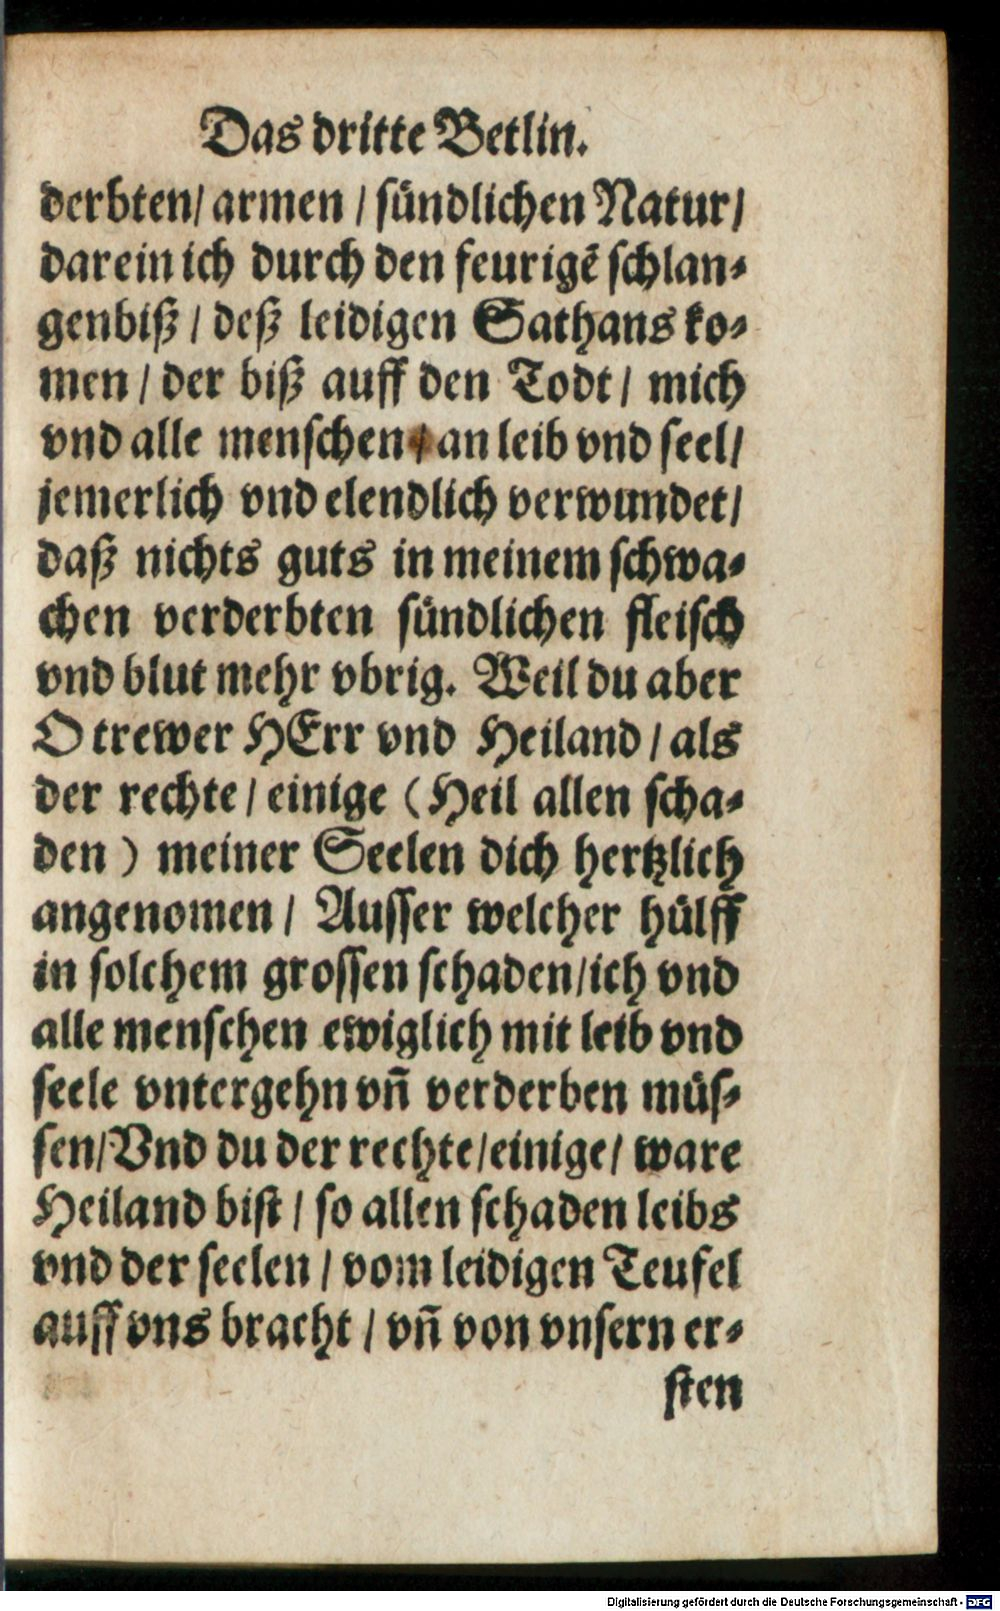 Das dritte Betlin.
derbten/ armen / sündlichen Natur/
darein ich durch den feurigẽ schlan-
genbiß / deß leidigen Sathans ko-
men / der biß auff den Todt / mich
vnd alle menschen / an leib vnd seel/
jemerlich vnd elendlich verwundet/
daß nichts guts in meinem schwa-
chen verderbten sündlichen fleisch
vnd blut mehr vbrig. Weil du aber
O trewer HErr vnd Heiland / als
der rechte / einige (Heil allen scha-
den) meiner Seelen dich hertzlich
angenomen / Ausser welcher hülff
in solchem grossen schaden/ich vnd
alle menschen ewiglich mit leib vnd
seele vntergehn vñ verderben müs-
sen/Vnd du der rechte/einige/ ware
Heiland bist / so allen schaden leibs
vnd der seelen / vom leidigen Teufel
auff vns bracht / vñ von vnsern er-
sten
Digitalisierung gefördert durch die Deutsche Forschungsgemeinschaft - DFG